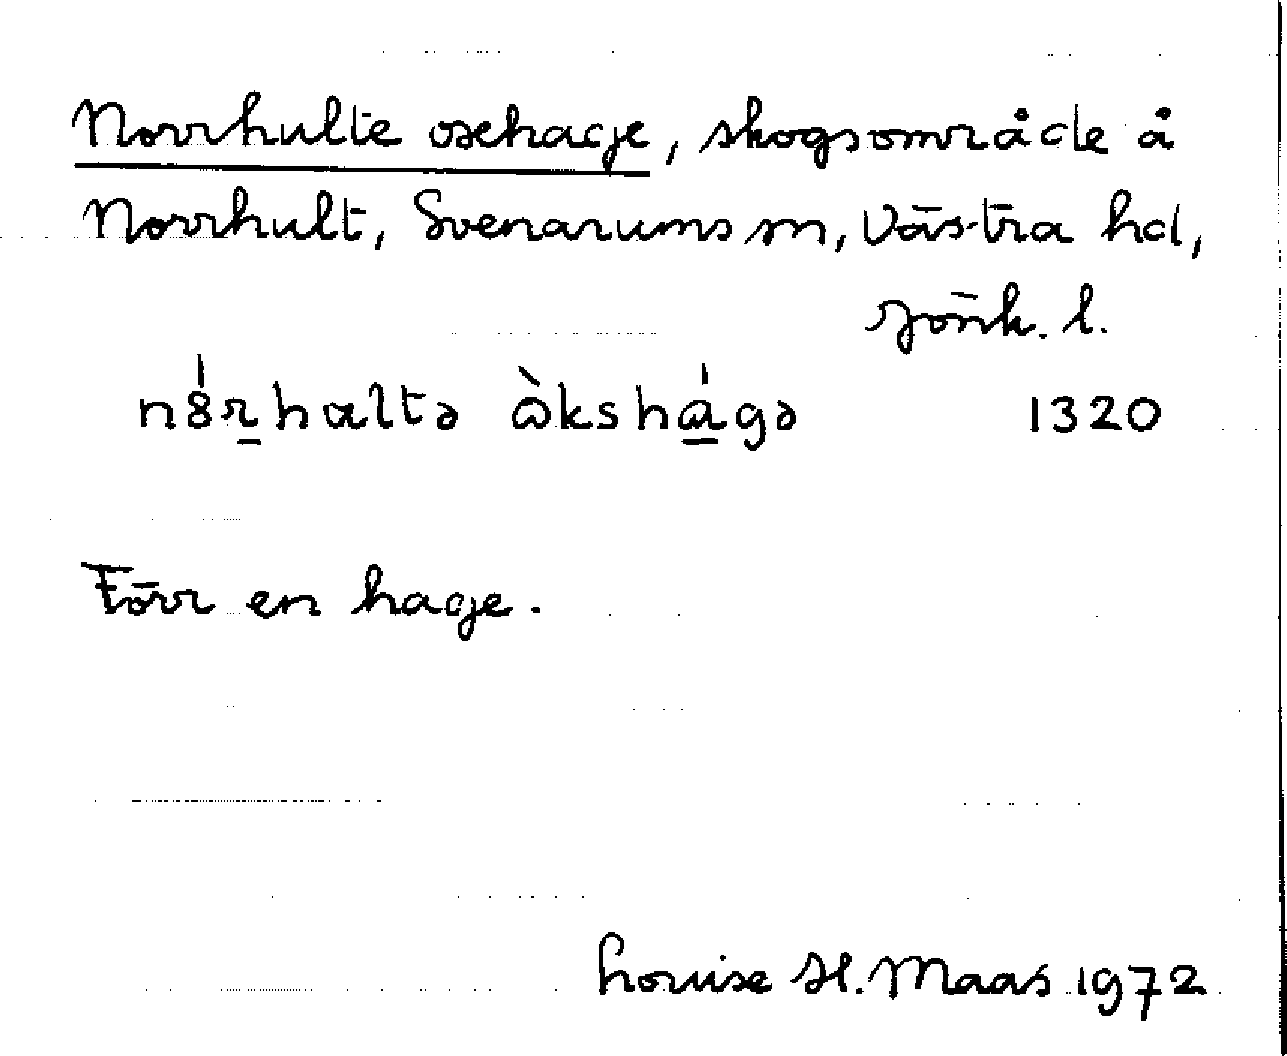 Norrhulte oxehage, skogsområde å
Norrhult, Svenarums sn, Västra hd,
Jönk. l.
1320
Förr en hage.
Louise H. Maas 1972